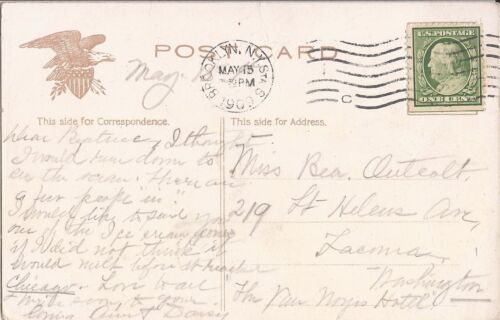 POST CARD
BROOKLYN, N.Y. STA
MAY 15
PM
U.S. POSTAGE
ONE CENT
C
May
This side for Correspondence.
This side for Address.
Dear Beatrice, I thought
I would run down to
see the ocean. There are
a few people "in".
I would like to send you
one of the Ice cream cones
if I did not think it
would melt before it reached
Chicago. Love
write soon to your
loving Aunt Daisy
Miss Bea. Outcalt.
219 St Helens Ave,
Tacoma,
Washington
The Van Noys Hotel.